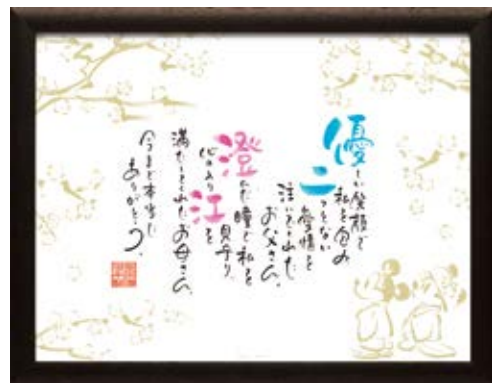 優しい笑顔で
私を包み
二つとない
愛情を
注いでくれた
お父さん。
澄んだ瞳で私を
見守り
心の入り江を
満たしてくれたお母さん。
今まで本当に
ありがとう。